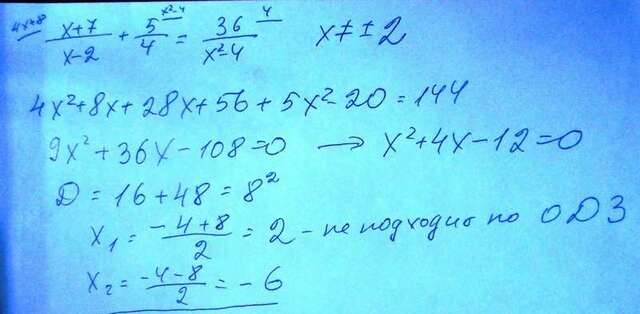 4x+8 x+7/x-2 + 5/4 x²-4 = 36/x²-4 4 x≠±2
4x²+8x+28x+56+5x²-20=144
9x²+36x-108=0 → x²+4x-12=0
D=16+48=8²
x₁=-4+8/2=2-не подходит по ОДЗ
x₂=-4-8/2=-6